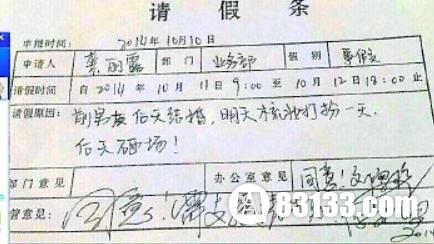 请假条
申报时间: 2014年10月10日
申请人 龚丽露 部门 业务部 假别 事假
请假时间 自2014年10月11日9:00至10月12日18:00止
请假原因: 前男友后天结婚,明天梳妆打扮一天.
后天砸场!
部门意见 办公室意见 同意!
管意见: 同意!需支援
83133.com
2014